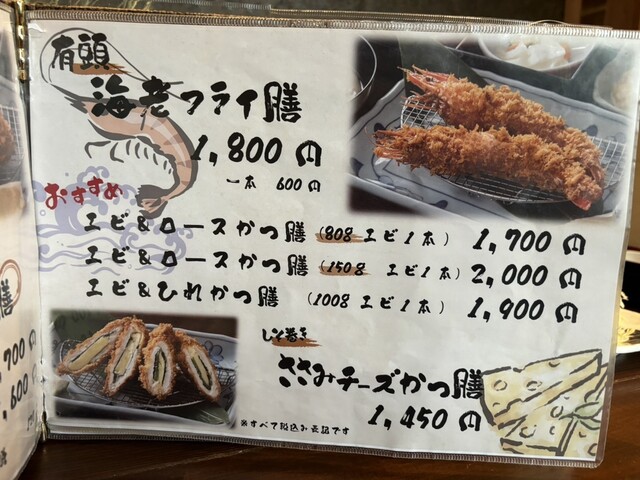 有頭
海老フライ膳
1,800円
一本 600円
おすすめ
エビ&ロースかつ膳 (80g エビ1本) 1,700円
エビ&ロースかつ膳 (150g エビ1本) 2,000円
エビ&ひれかつ膳 (100g エビ1本) 1,900円
しそ巻き
ささみチーズかつ膳
1,450円
※すべて税込み表記です
膳
700円
,600